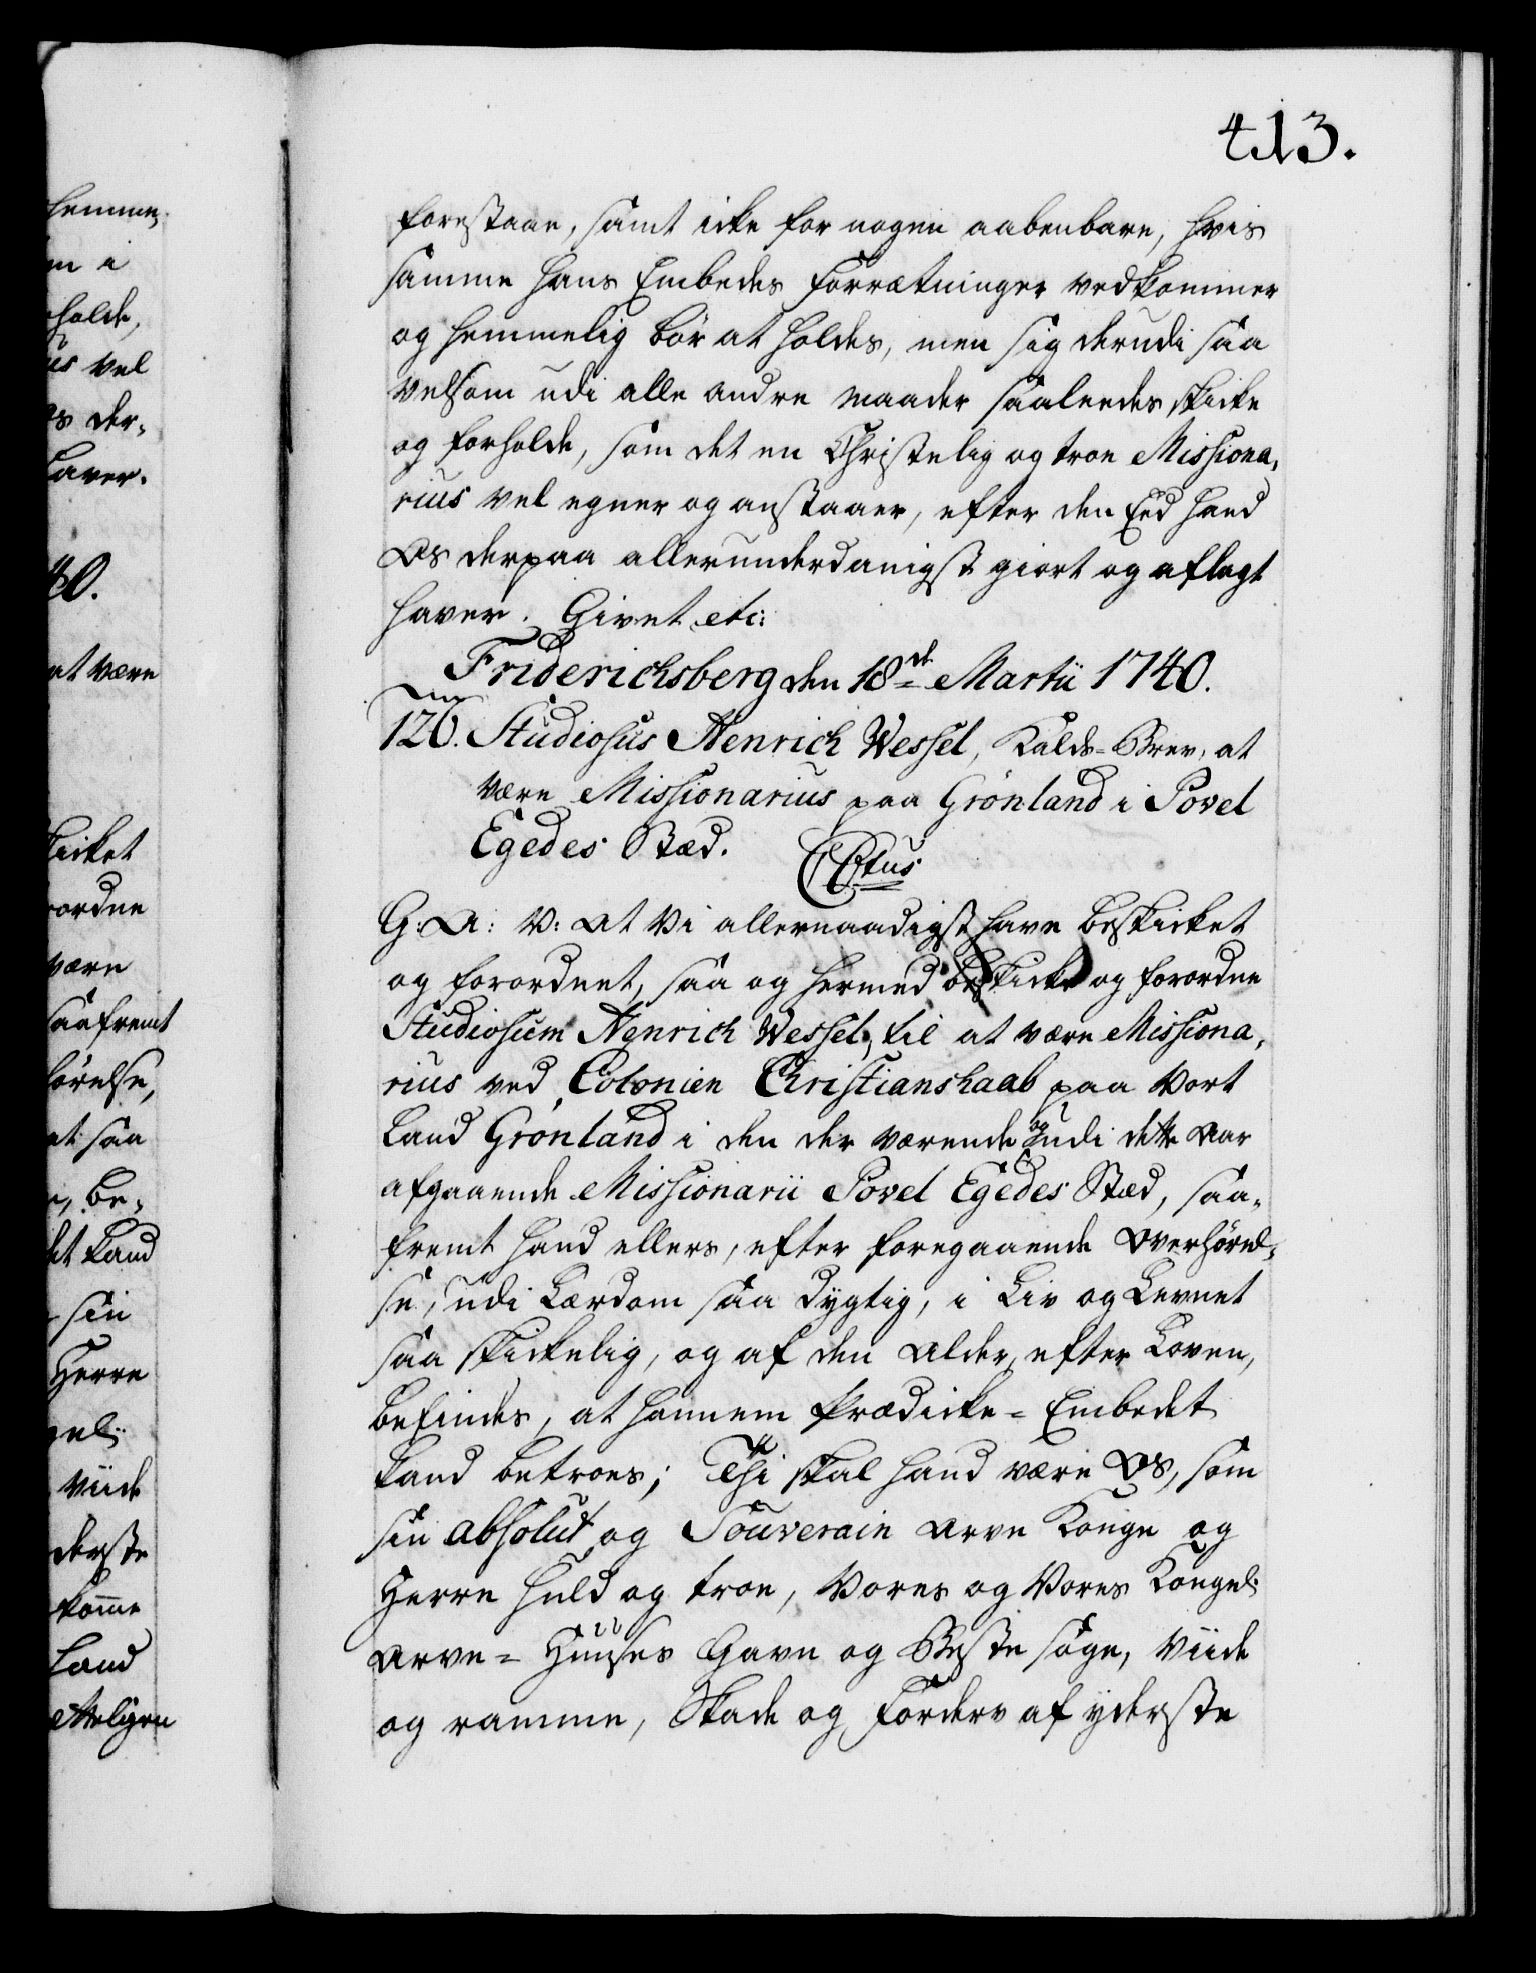 413.
hemme,
en i
holde,
us vel
os der-
haver.
40.
at være
skicket
ordne
være
saafremt
hörelse,
at saa
, be-
et Land
sin
Herre
gel:
viide
derste
komme
Land
etteligen
forestaae, samt icke for nogen aabenbare, hvis
samme hans Embedes Forretninger vedkommer
og hemmelig bör at holdes, men sig derudi saa
velsom udi alle andre maader saaledes skicke
og forholde, som det en Christelig og troe Missiona,
rius vel egner og anstaaer, efter den Eed hand
Os derpaa allerunderdanigst giort og aflagt
haver. Givet etc:
Friderichsberg den 18de Martii 1740.
126. Studiosus Henrich Wessel, Kalds-Brev, at
være Missionarius paa Grönland i Povel
Egedes Stæd.
C Ctus
G: A: V: At Vi allernaadigst have beskicket
og forordnet, saa og hermed beskicke og forordne
Studiosum Henrich Wessel, til at være Missiona,
rius ved Colonien Christianshaab paa Vort
Land Grönland i den der værende og udi dette Aar
afgaaende Missionarii Povel Egedes Stæd, saa-
fremt hand ellers, efter foregaaende Overhörel-
se, udi Lærdom saa dygtig, i Liv og Levnet
saa skickelig, og af den Alder, efter Loven,
befindes, at hannem Prædicke-Embedet
kand betroes; Thi skal hand være Os, som
sin absolut og Souverain Arve Konge og
Herre huld og troe, Vores og Vores Kongel:
Arve-Huuses Gavn og Beste söge, viide
og ramme, Skade og Forderv af yderste